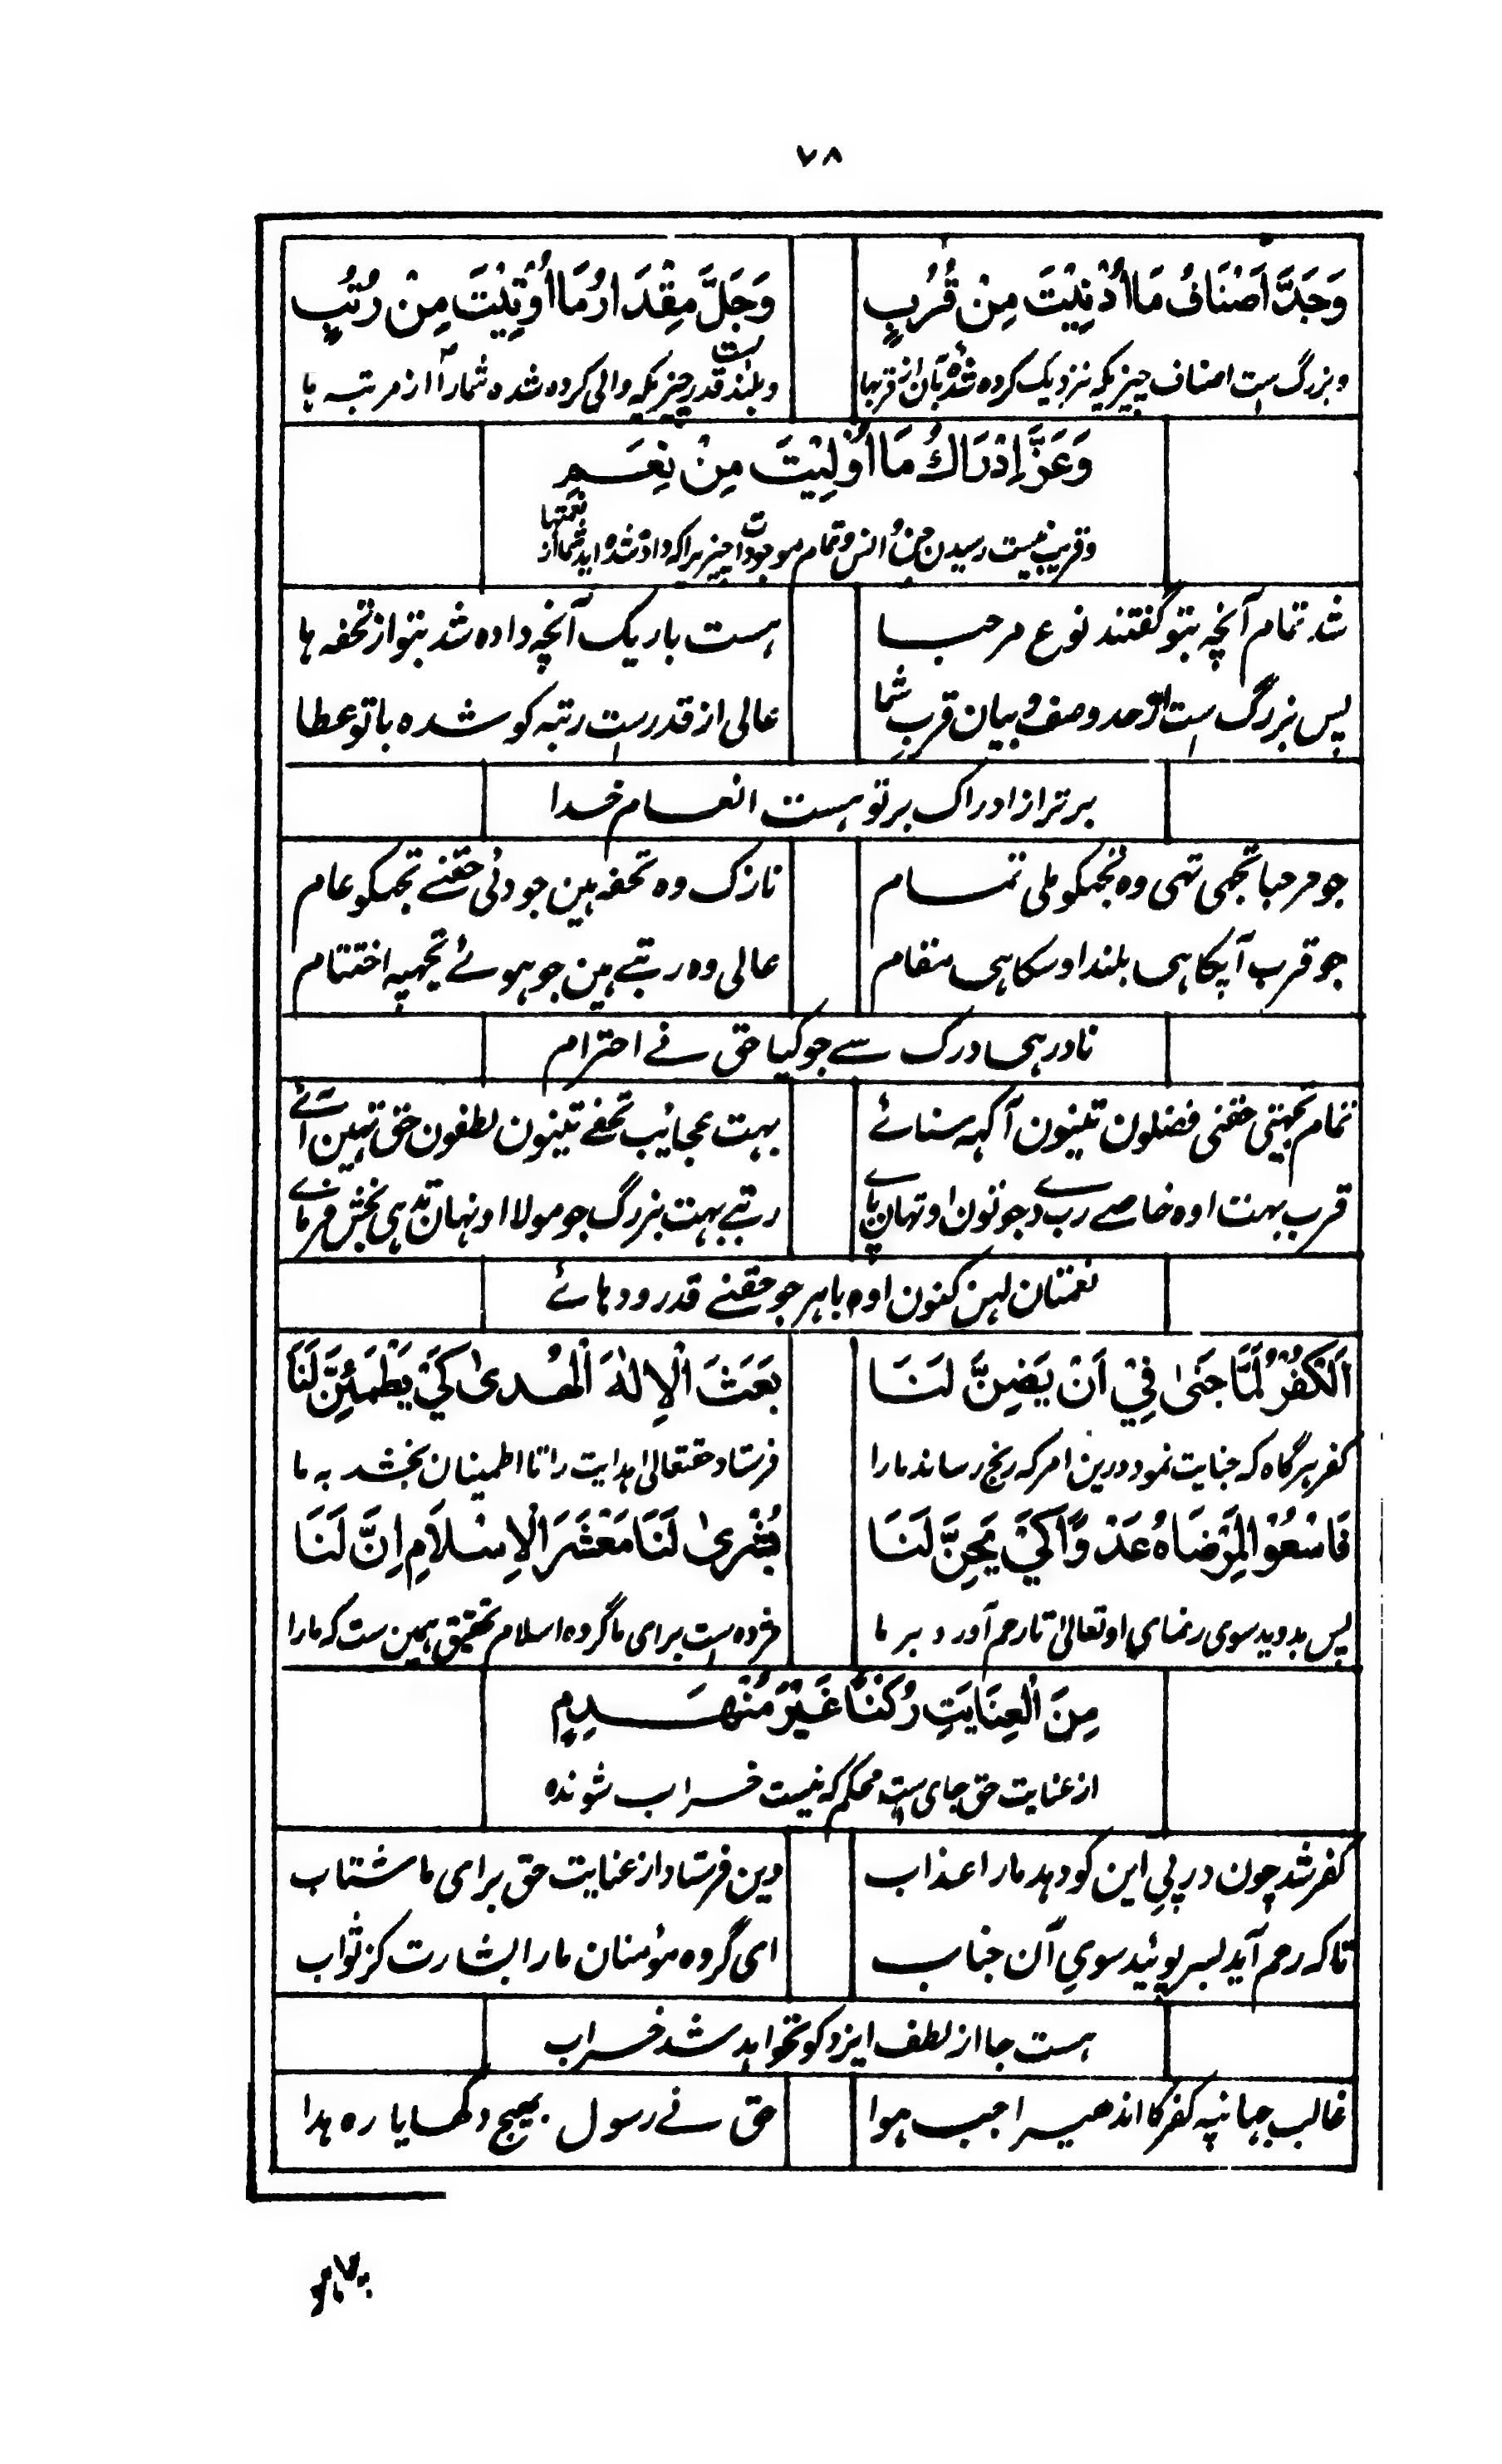 ٧٨
وَجَدَّ اَصْنَافُ مَا اُدْنِيْتَ مِنْ قُرُبٍ
وَجَلَّ مِقْدَارُ مَا اُوْتِيْتَ مِنْ رُتَبٍ
و بزرگ است اصناف چیزیکه نزدیک کرده شده بآن از قربها
و بلند است قدر چیزیکه والی کرده شده شمارا از مرتبه ها
وَعَزَّ اِدْرَاكُ مَا اُوْلِيْتَ مِنْ نِعَمٍ
و قریب نیست رسیدن جن و انس و تمام موجودات چیزیرا که داده شده اید شما از نعمتها
شد تمام آنچه بتو گفتند نوع مرحبا
هست باریک آنچه داده شد بتو از تحفه ها
پس بزرگ است از حد وصف و بیان قرب شما
عالی از قدر است رتبه کو شده با تو عطا
برتر از ادراک بر تو هست انعام خدا
جو مرحبا تجھی تھی وہ تجھکو ملی تمام
نازک وہ تحفہ ہین جو دئی حقنے تجھکو عام
جو قرب آپکا ہی بلند اوسکا ہی مقام
عالی وہ رتبے ہین جو ہوئے تجھپہ اختتام
نادر ہی درک سے جو کیا حق نے احترام
تمام تہیتی حقنی فضلون تینون آکہہ سنائے
بہت عجائیب تحفے تینون لطفون حق تہین آئے
قرب بہت اوہ خاصے رب دے جو تون اوتہان پائے
رتبے بہت بزرگ جو مولا اونہان تدہی بخش فرمائے
نعمتان لہن کنون اوہ باہر جو حقنے قدر ودہائے
اَلْكُفْرُ لَمَّا جَنٰى فِيْ اَنْ يَضِنَّ لَنَا
بَعَثَ الْاِلٰهُ الْهُدىٰ كَيْ يَطْمَئِنَّ لَنَا
کفر هرگاه که جنایت نمود درین امر که رنج رساند مارا
فرستاد حقتعالی هدایت را تا اطمینان بخشد به ما
فَاسْعَوْا لِمَرْضَاهُ عَدْوًا كَيْ يَحِنَّ لَنَا
بُشْرىٰ لَنَا مَعْشَرَ الْاِسْلَامِ اِنَّ لَنَا
پس بدوید سوی رضای او تعالیٰ تا رحم آورد بر ما
مژده است برای ما گروه اسلام تحقیق همین ست که مارا
مِنَ الْعِنَايَتِ رُكْنًا غَيْرَ مُنْهَدِمٍ
از عنایت حق جای ست محکم که نیست خراب شونده
کفر شد چون در پیِ این کو دهد مارا عذاب
دین فرستاد از عنایت حق برای ما شتاب
تا که رحم آید بسر پوئید سوی آن جناب
ای گروه مؤمنان مارا بشارت کز ثواب
هست جا از لطف ایزد کو نخواهد شد خراب
غالب جہانپہ کفر کا اندھیرا جب ہوا
حق نے رسول بھیج دکھایا رہ ہدا